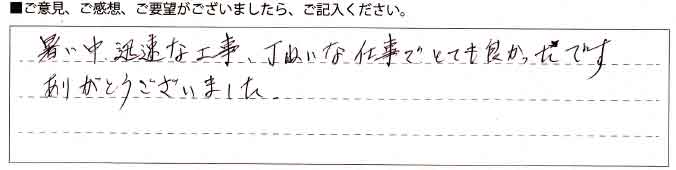 ■ご意見、ご感想、ご要望がございましたら、ご記入ください。
暑い中、迅速な工事、丁ねいな仕事でとても良かったです
ありがとうございました。